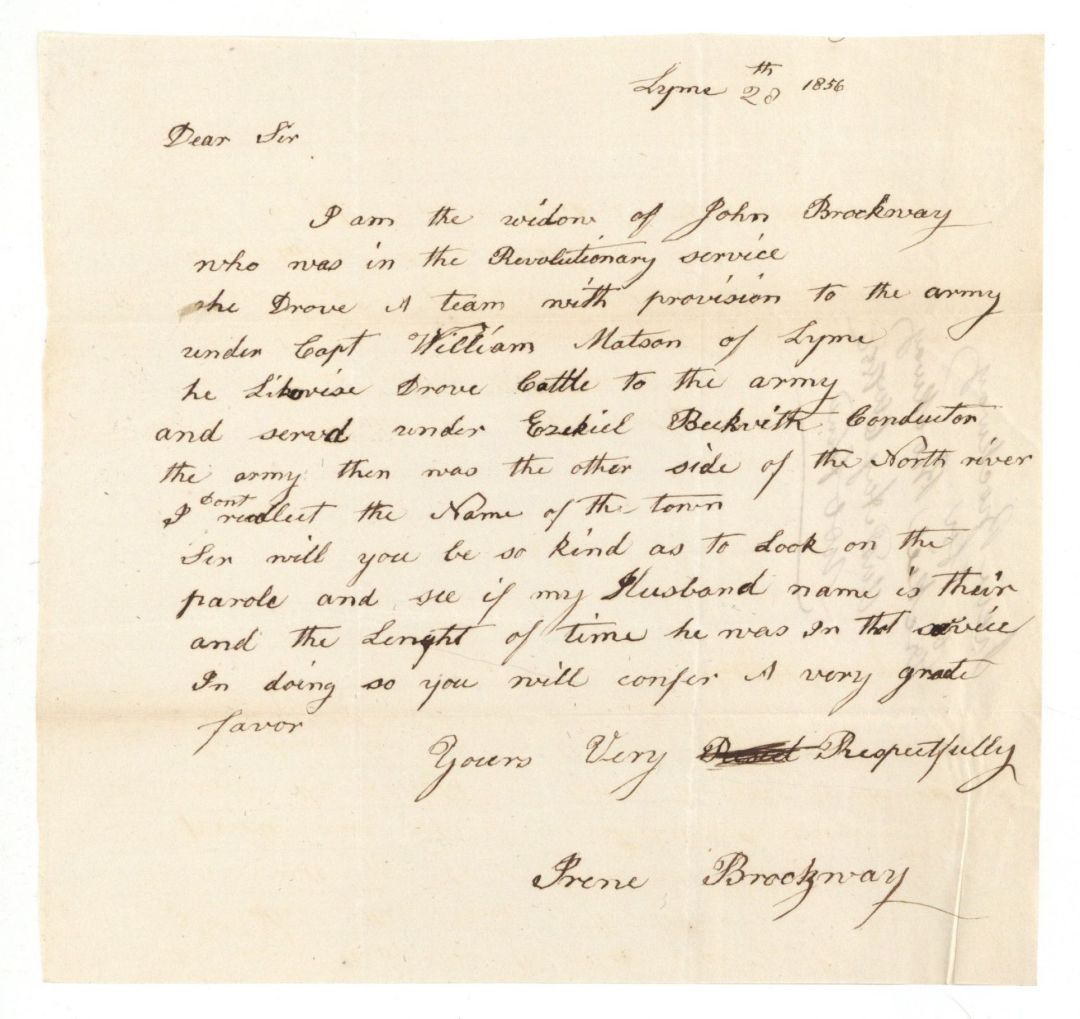 Lyme 28th 1856
Dear Sir
I am the widow of John Brockway
who was in the Revolutionary service
he Drove A team with provision to the army
under Capt William Matson of Lyme
he Likewise Drove Cattle to the army
and servd under Ezekiel Beckwith Conductor
the army then was the other side of the North river
I Dont recollect the Name of the town
Sir will you be so kind as to Look on the
parole and see if my Husband name is their
and the Lenght of time he was In that service
In doing so you will confer A very grate
favor
Yours Very Respectfully
Irene Brockway